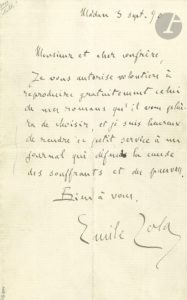 Médan 3 sept. 9
Monsieur et cher confrère,
Je vous autorise volontiers à
reproduire gratuitement celui
de mes romans qu'il vous plaira
de choisir, et je suis heureux
de rendre ce petit service à un
journal qui défend la cause
des souffrants et des pauvres.
Bien à vous.
Emile Zola